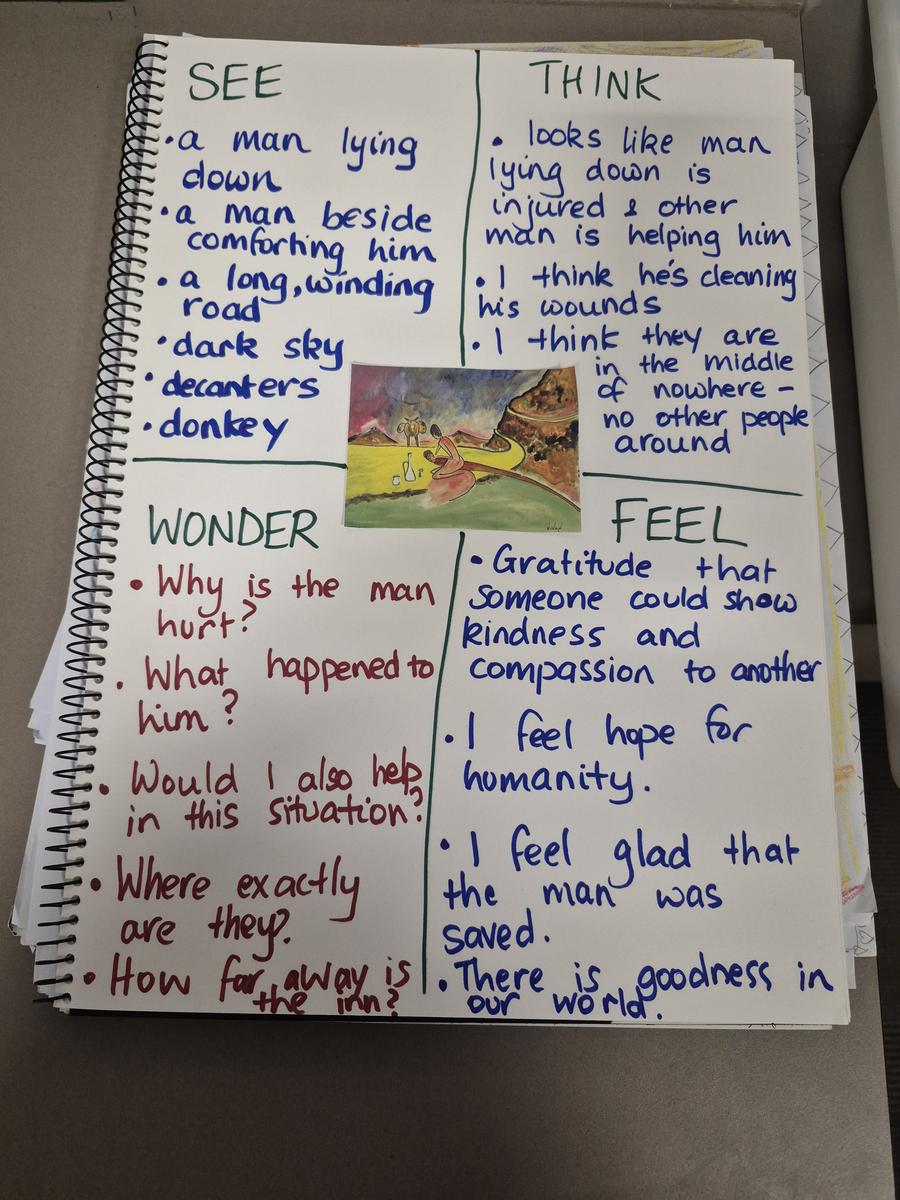 SEE
• a man lying
down
• a man beside
comforting him
• a long, winding
road
• dark sky
• decanters
• donkey
THINK
• looks like man
lying down is
injured & other
man is helping him
• I think he's cleaning
his wounds
• I think they are
in the middle
of nowhere -
no other people
around
WONDER
• Why is the man
hurt?
• What happened to
him?
• Would I also help
in this situation?
• Where exactly
are they?
• How far away is
the inn?
FEEL
• Gratitude that
someone could show
kindness and
compassion to another
• I feel hope for
humanity.
• I feel glad that
the man was
saved.
• There is goodness in
our world.